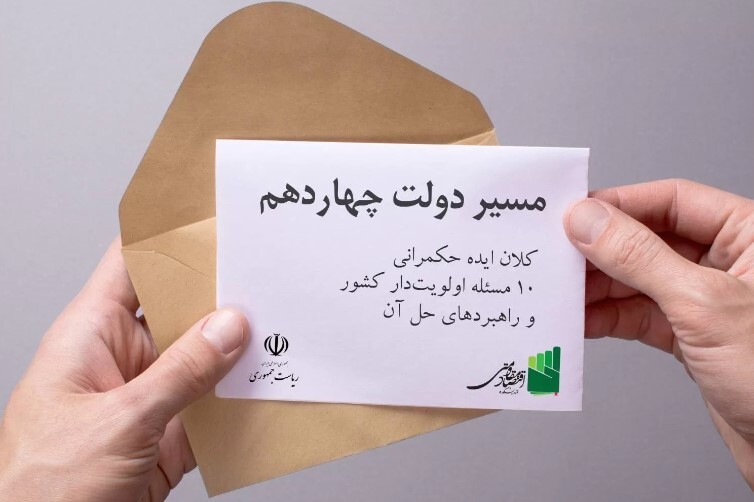 مسیر دولت چهاردهم
کلان ایده حکمرانی
۱۰ مسئله اولویت‌دار کشور
و راهبردهای حل آن
جمهوری اسلامی ایران
ریاست جمهوری
اقتصاد مقاومتی